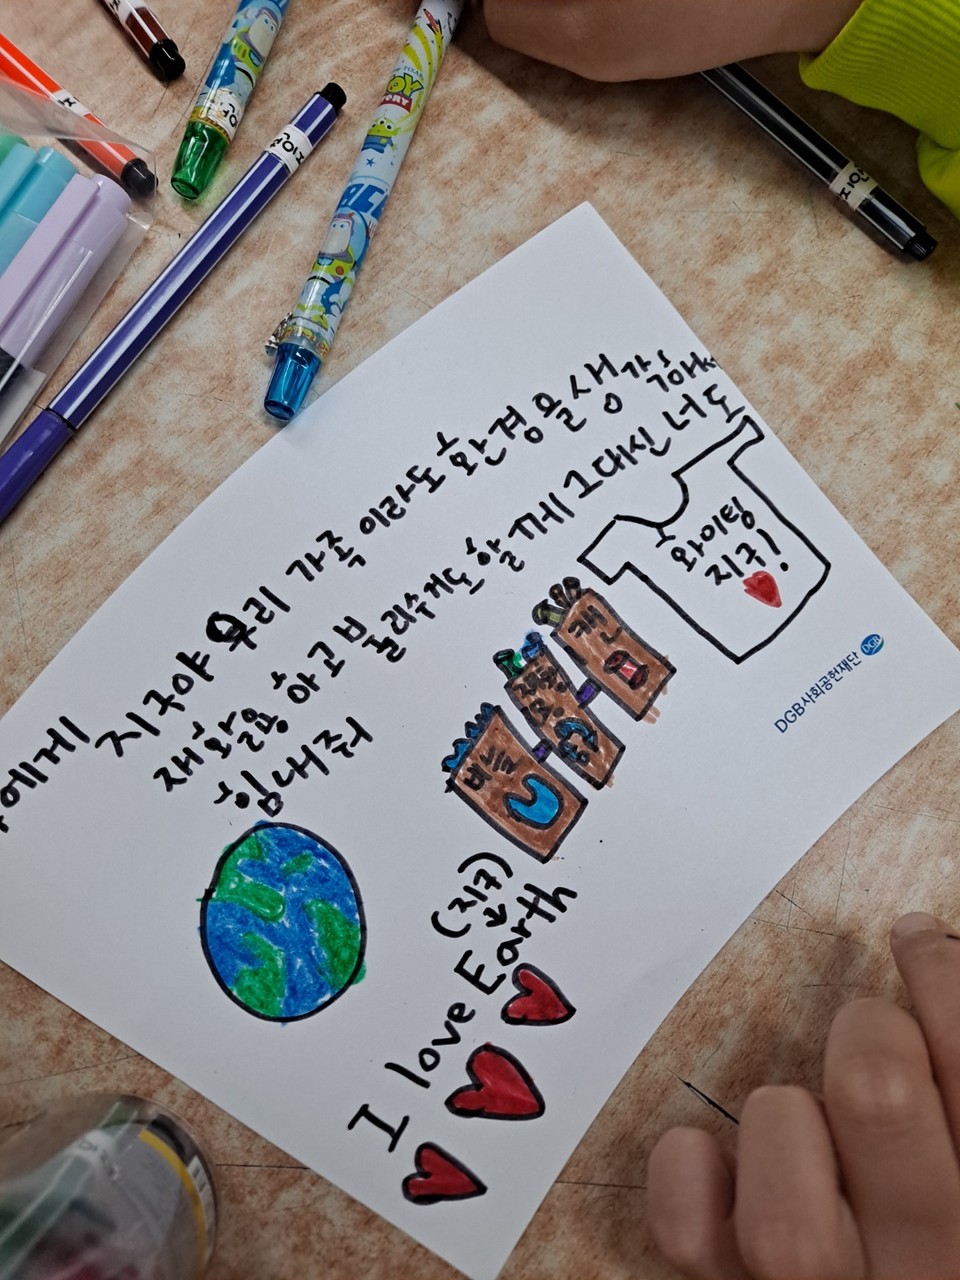 에게
지구야 우리 가족 이라도 환경 을 생각해서
재활용 하고 분리수게도 할께 그대신 너도
힘내줘
화이팅
지구!
캔
재활용
비늘
(지구)
↓
I love Earth
DGB사회공헌재단 DGB
TOY
STORY